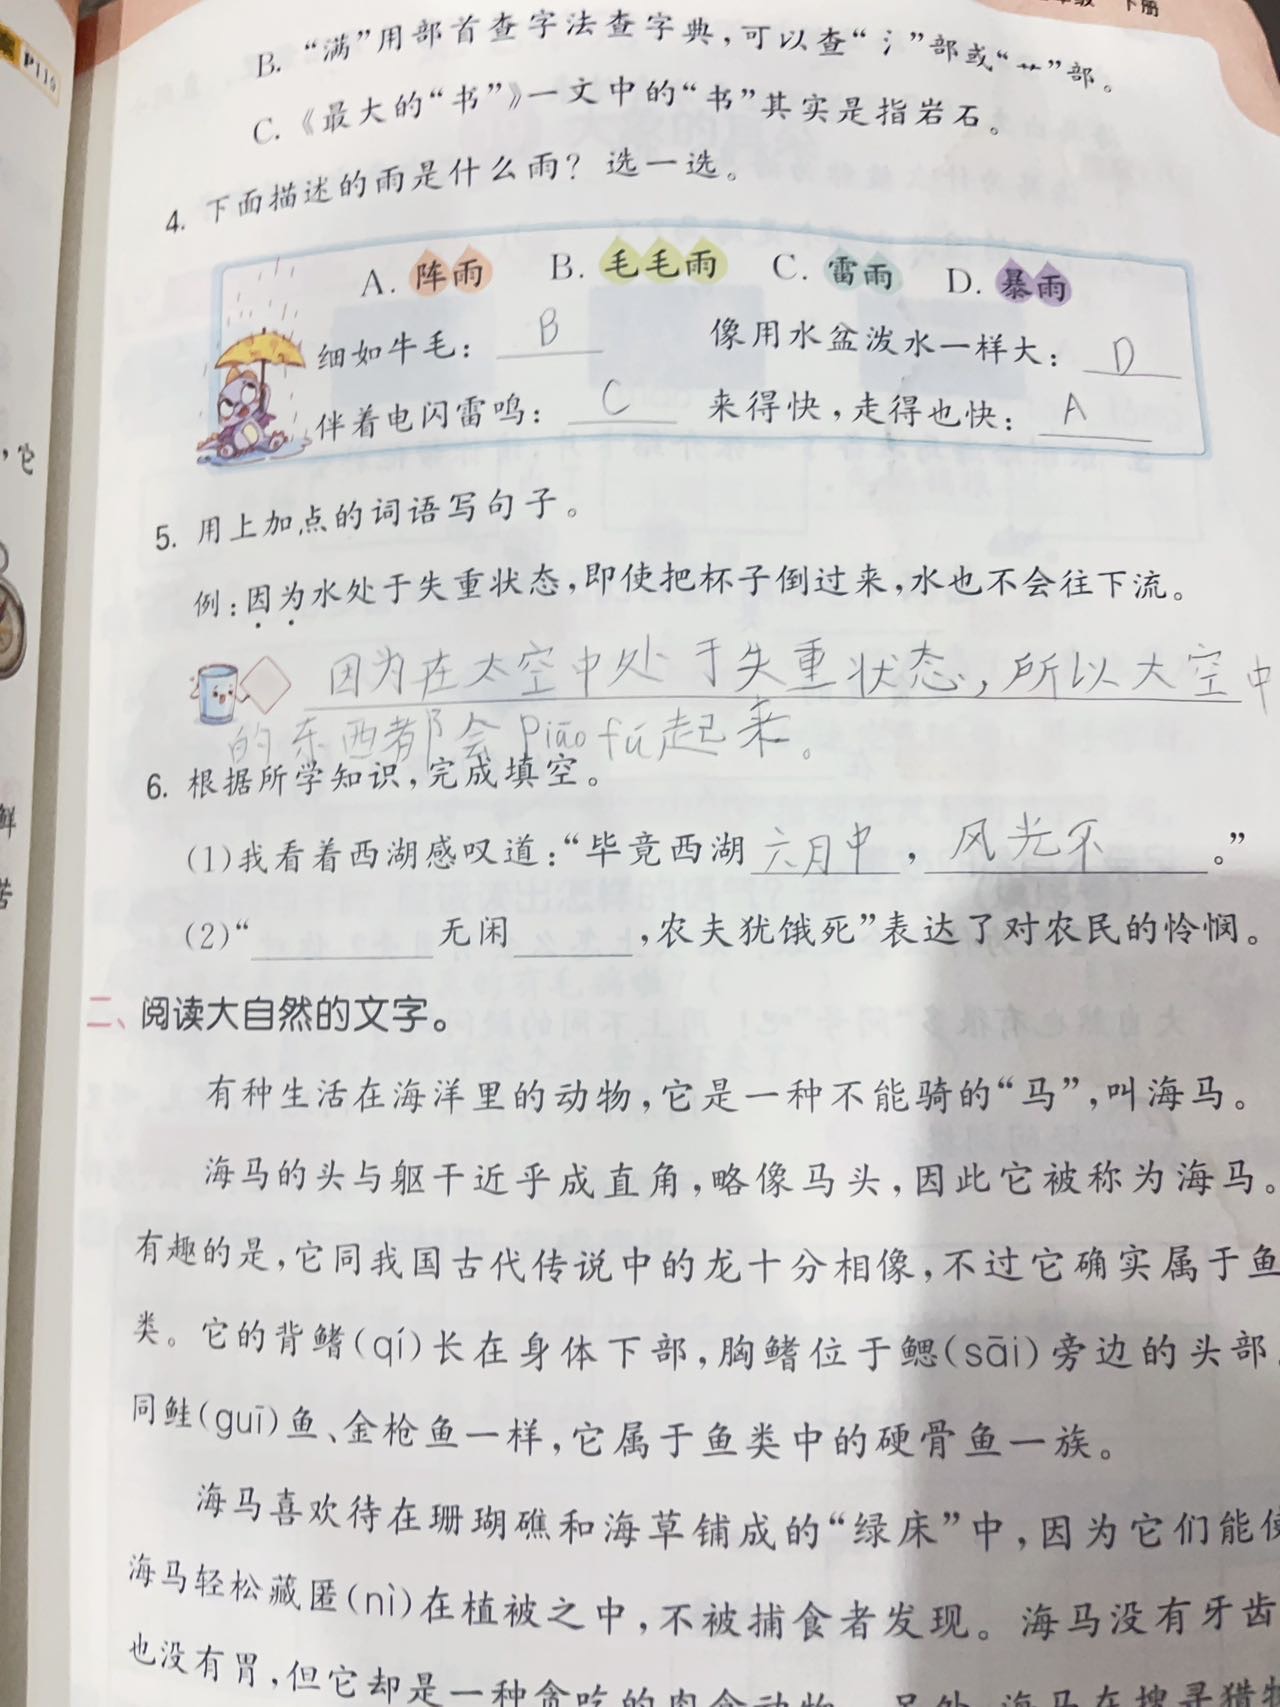 下册
P110
B. “满”用部首查字法查字典，可以查“氵”部或“艹”部。
C.《最大的“书”》一文中的“书”其实是指岩石。
4. 下面描述的雨是什么雨？选一选。
A. 阵雨 B. 毛毛雨 C. 雷雨 D. 暴雨
细如牛毛：B 像用水盆泼水一样大：D
伴着电闪雷鸣：C 来得快，走得也快：A
，它
5. 用上加点的词语写句子。
例：因为水处于失重状态，即使把杯子倒过来，水也不会往下流。
因为在太空中处于失重状态，所以大空中
的东西都会piāo fú起来。
6. 根据所学知识，完成填空。
鲜
(1)我看着西湖感叹道：“毕竟西湖六月中，风光不。”
苦
(2)“ 无闲 ，农夫犹饿死”表达了对农民的怜悯。
二、阅读大自然的文字。
有种生活在海洋里的动物，它是一种不能骑的“马”，叫海马。
海马的头与躯干近乎成直角，略像马头，因此它被称为海马。
有趣的是，它同我国古代传说中的龙十分相像，不过它确实属于鱼
类。它的背鳍(qí)长在身体下部，胸鳍位于鳃(sāi)旁边的头部，
同鲑(guī)鱼、金枪鱼一样，它属于鱼类中的硬骨鱼一族。
海马喜欢待在珊瑚礁和海草铺成的“绿床”中，因为它们能使
海马轻松藏匿(nì)在植被之中，不被捕食者发现。海马没有牙齿
也没有胃，但它却是一种贪吃的肉食动物。另外，海马在搜寻猎物